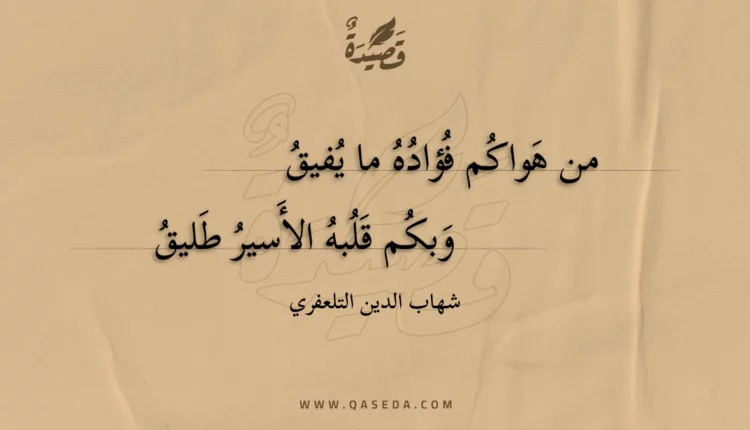 قَصِيدَةٌ
من هَواكُم فُؤادُهُ ما يُفيقُ
وَبكُم قَلُبهُ الأَسيرُ طَليقُ
شهاب الدين التلعفري
WWW.QASEDA.COM